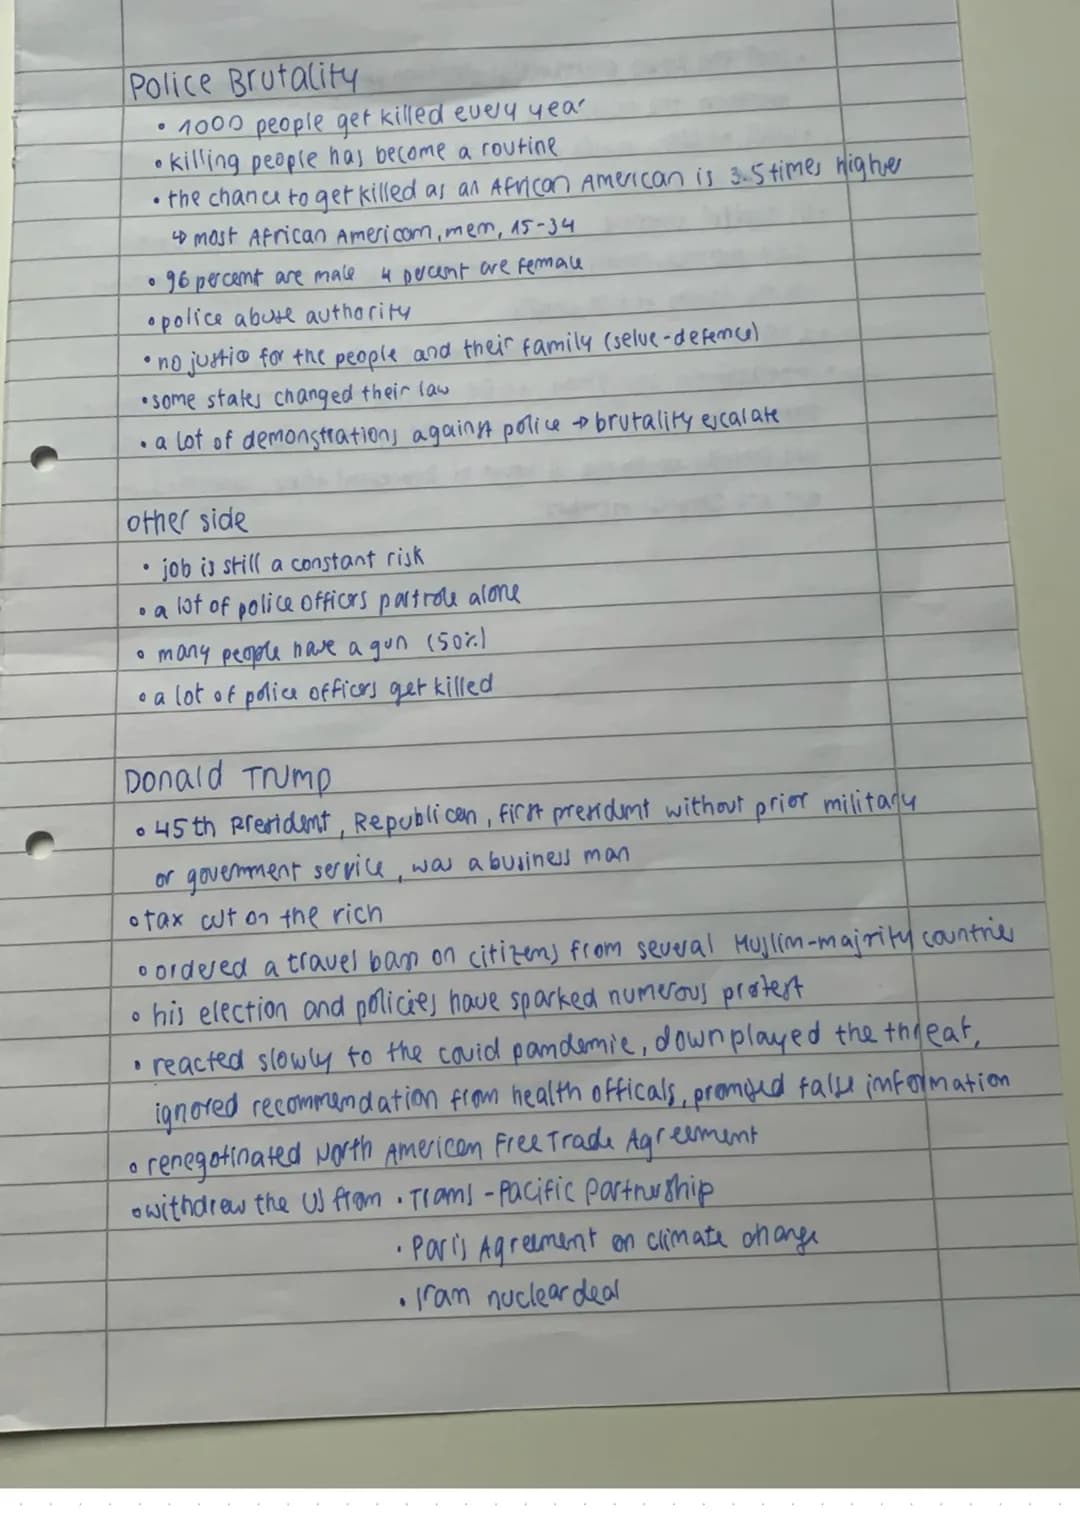 Police Brutality
• 1000 people get killed every year
• killing people has become a routine
• the chance to get killed as an African American is 3.5 times higher
↳ most African Americam, mem, 15-34
• 96 percent are male 4 percent are female
• police abuse authority
• no justice for the people and their family (selve-defence)
• some states changed their law
• a lot of demonstrations against police → brutality escalate
other side
• job is still a constant risk
• a lot of police officers partrole alone
• many people have a gun (50%)
• a lot of police officers get killed
Donald Trump
• 45th President, Republican, first president without prior military
or government service, was a business man
• tax cut on the rich
• ordered a travel ban on citizens from several Muslim-majority countries
• his election and policies have sparked numerous protest
• reacted slowly to the covid pandemie, downplayed the threat,
ignored recommendation from health officals, promoted false information
• renegotinated North American Free Trade Agreement
• withdrew the US from • Trans-Pacific partnership
• Paris Agreement on climate change
• Iran nuclear deal